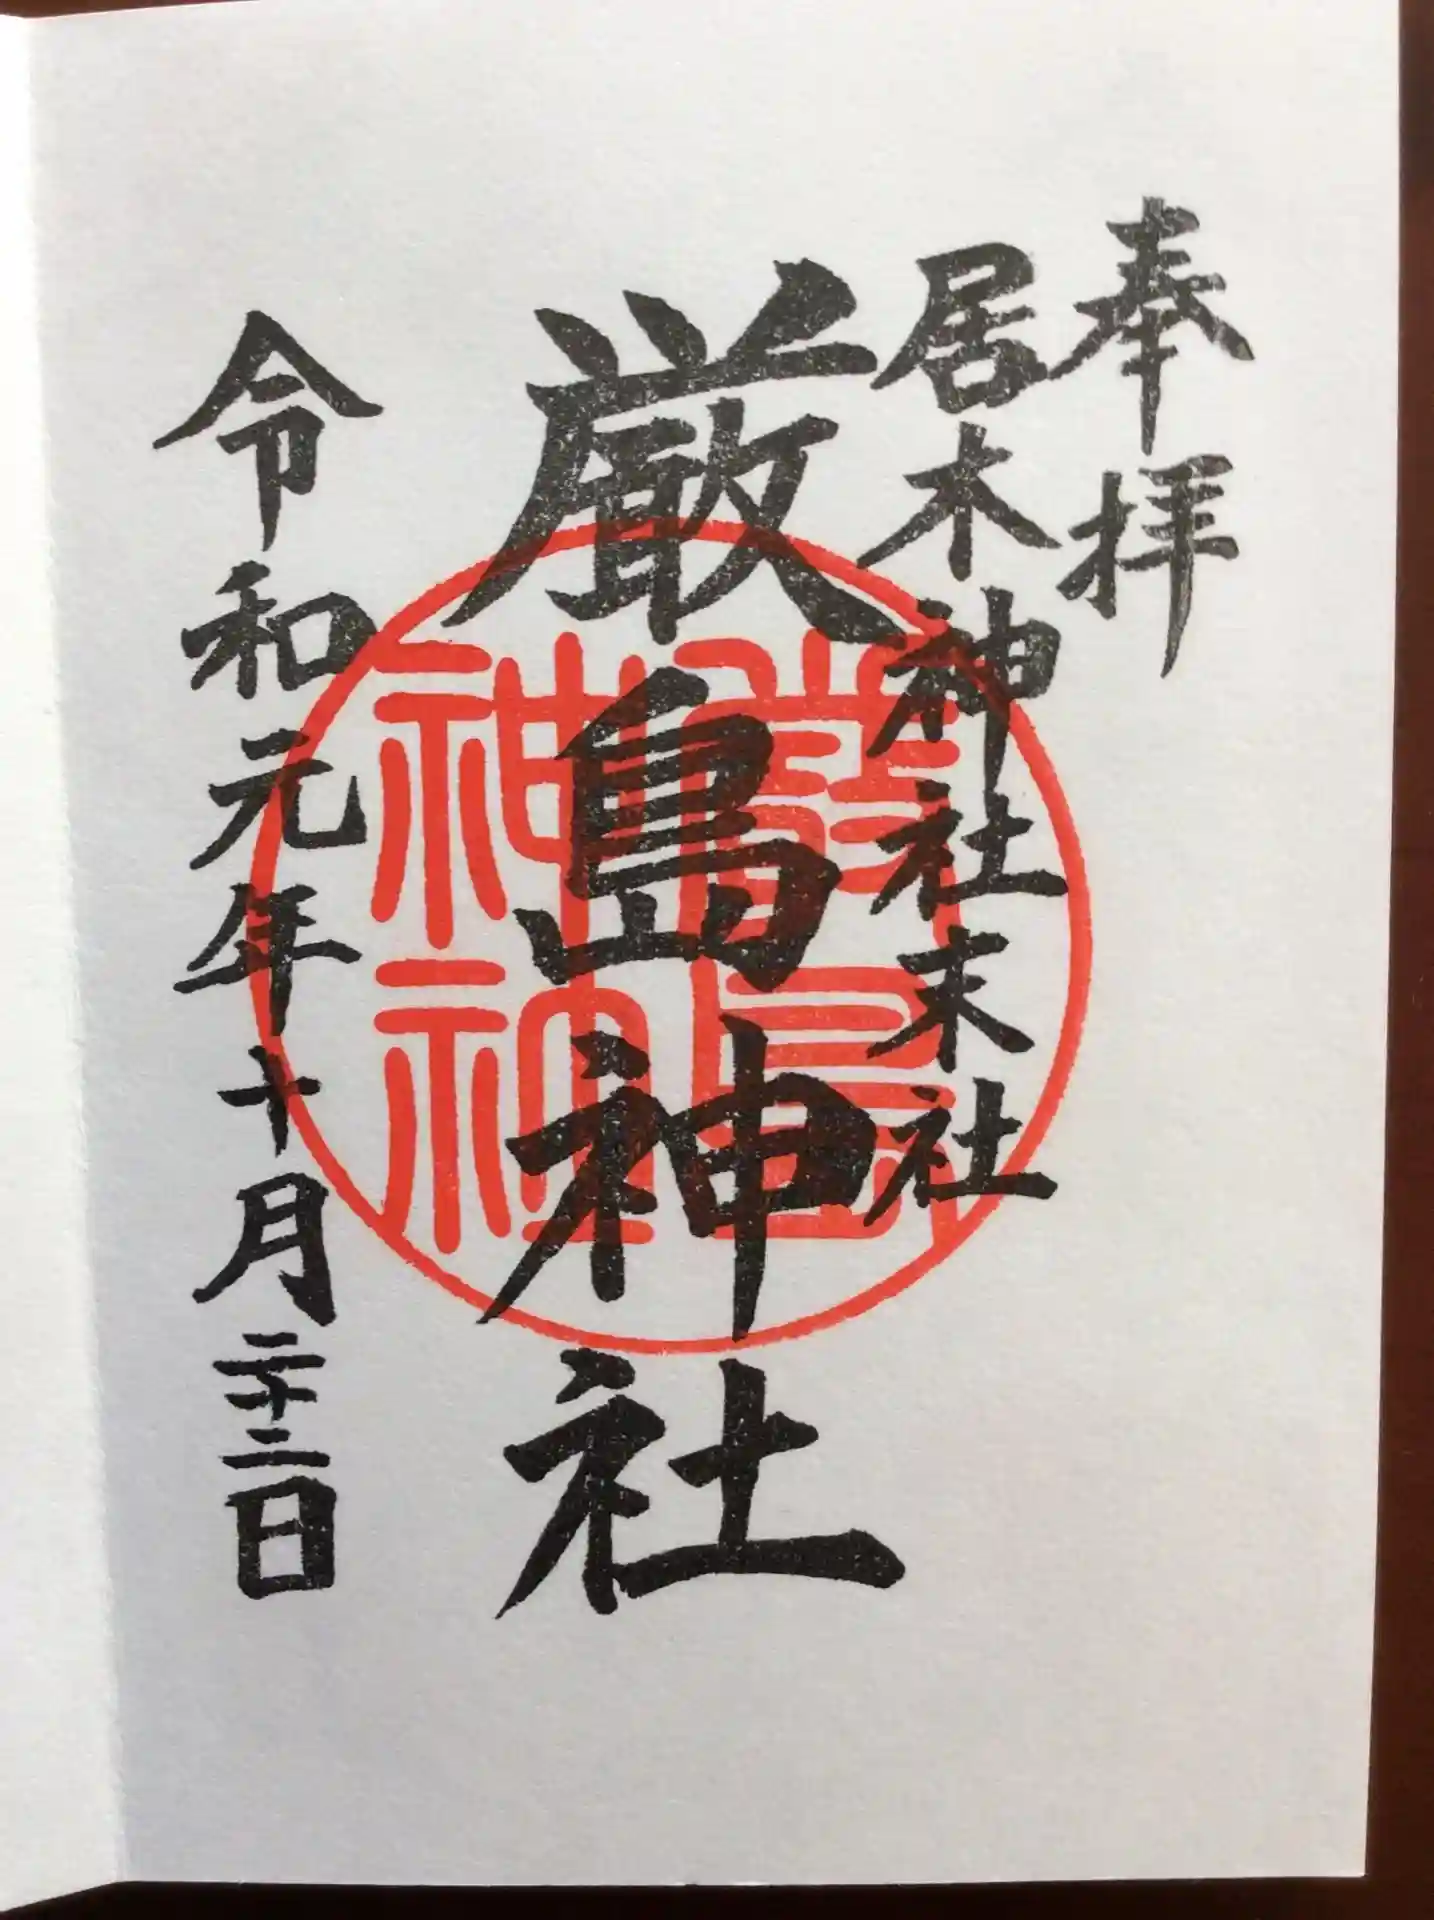 奉拝
居木神社末社
厳島神社
令和元年十月二十二日
嚴島
神社